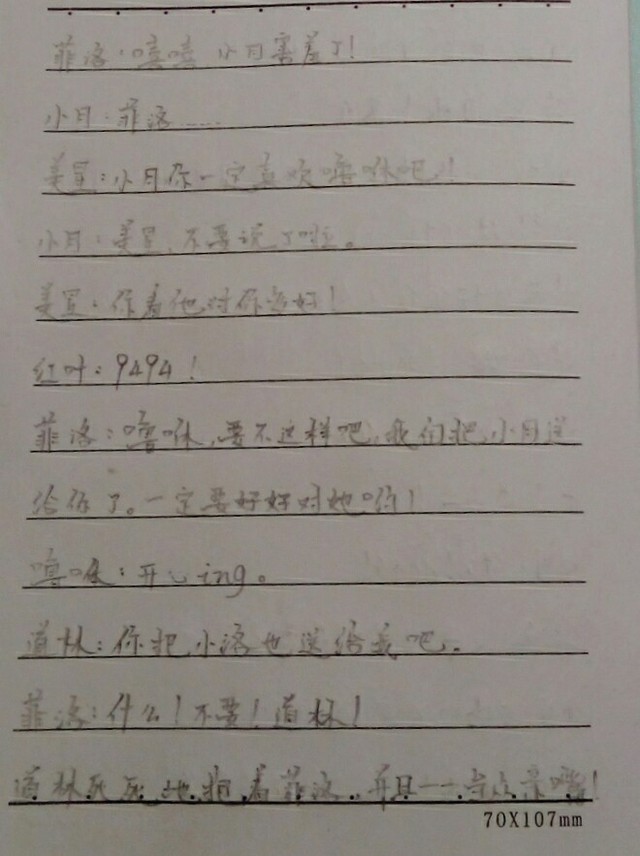 菲洛：嘻嘻 小月害羞了！
小月：菲洛……
美星：小月你一定喜欢噜咻吧！
小月：美星，不要说了啦。
美星：你看他对你多好！
红叶：9494！
菲洛：噜咻，要不这样吧，我们把小月送
给你了。一定要好好对她哟！
噜咻：开心ing。
道林：你把小洛也送给我吧。
菲洛：什么！不要！道林！
道林死死地抱着菲洛，并且一一亲嘴！
70X107mm